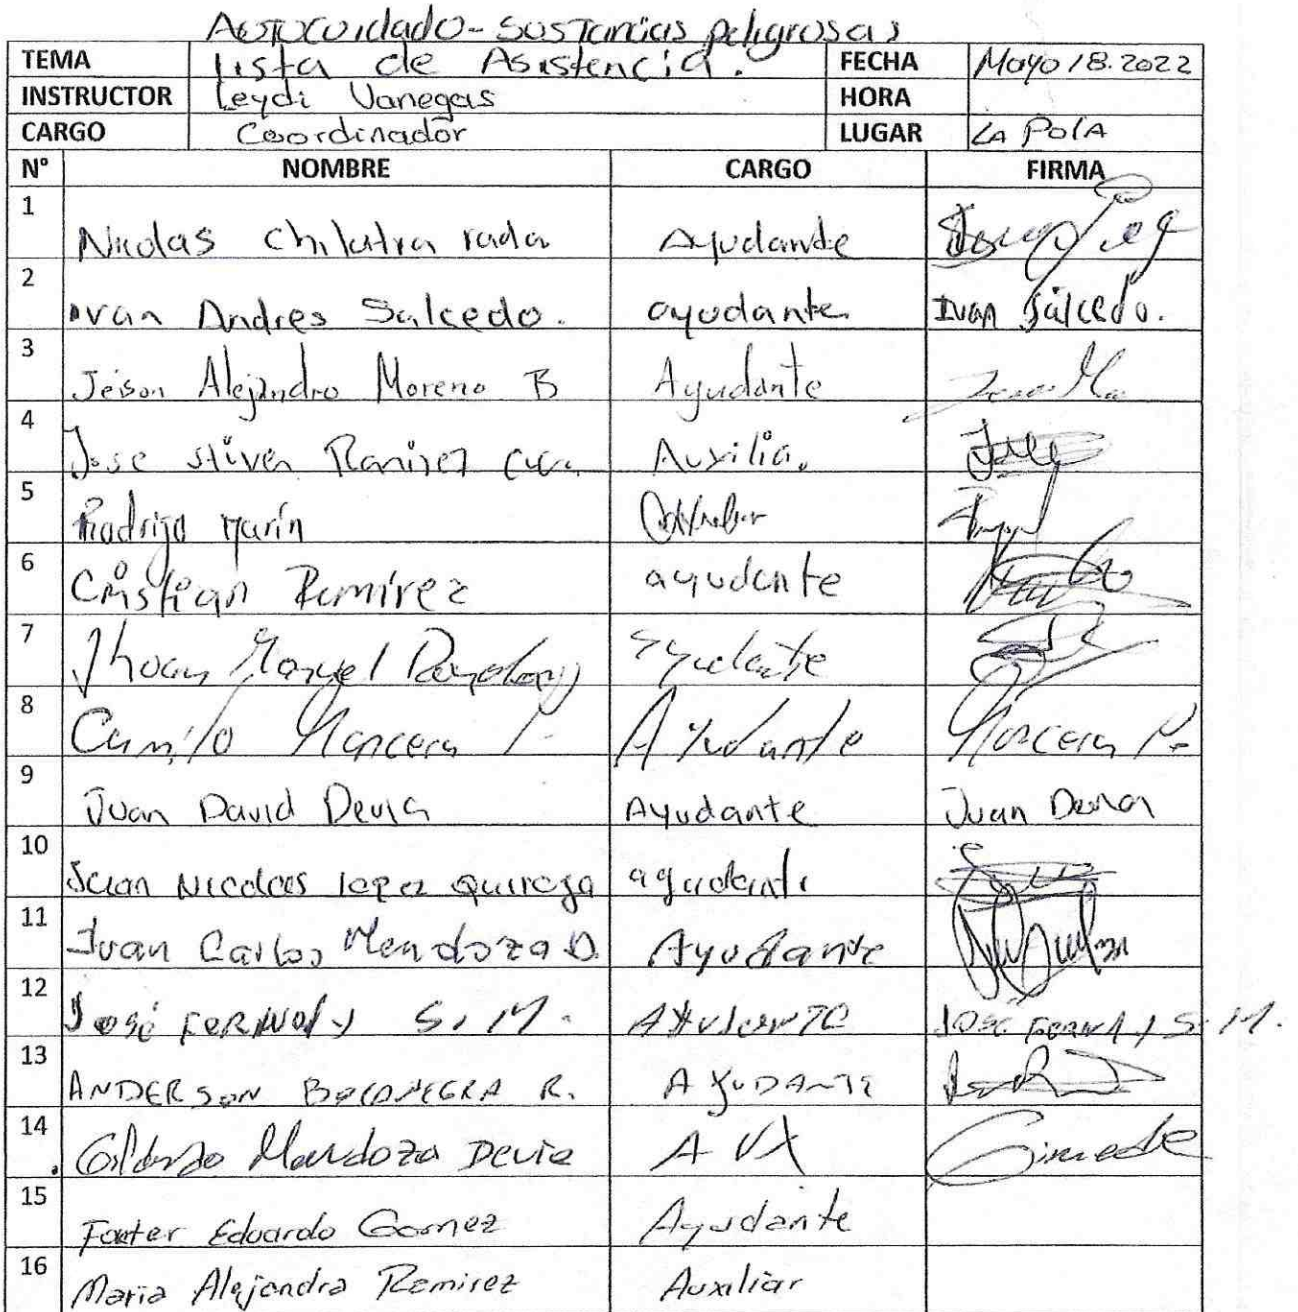 Autocuidado - Sustancias peligrosas
TEMA lista de Asistencia. FECHA Mayo 18. 2022
INSTRUCTOR Leydi Vanegas HORA
CARGO Coordinador LUGAR LA PolA
N° NOMBRE CARGO FIRMA
1 Nicolas Chilatra rada Ayudante
2 Ivan Andres Salcedo. ayudante Ivan Salcedo.
3 Jeison Alejandro Moreno B Ayudante
4 Jose stiven Ramirez Auxilia.
5 Rodrigo Marín
6 Cristian Ramírez ayudante
7 Jhoan Manuel Ayudante
8 Camilo Ayudante
9 Juan David Devia Ayudante Juan Devia
10 Juan Nicolas lopez Quiroga ayudante
11 Juan Carlos Mendoza D. Ayudante
12 José FERNEY S. M. AYUDANTE JOSÉ FERNEY S. M.
13 ANDERSON BOCANEGRA R. AYUDANTE
14 Mendoza Devia AUX
15 Eduardo Gomez Ayudante
16 Maria Alejandra Ramirez Auxiliar